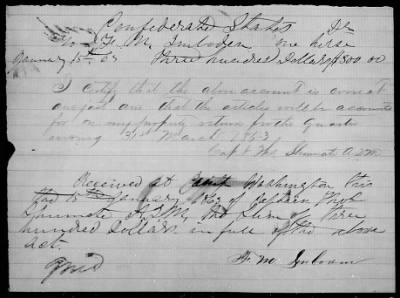 Confederate States Dr
To F. M. Imboden one horse
January 15th 63 Three hundred Dollars $300.00
I certify that the above account is correct
and just and that the articles will be accounted
for on my property return for the quarter
ending 31st March 1863
Capt Thos A.Q.M.
Received at Camp Washington this
the 15th January 1863 of Captain Thos
A.Q.M. the Sum of Three
hundred Dollars in full of the above
act.
F. M. Imboden